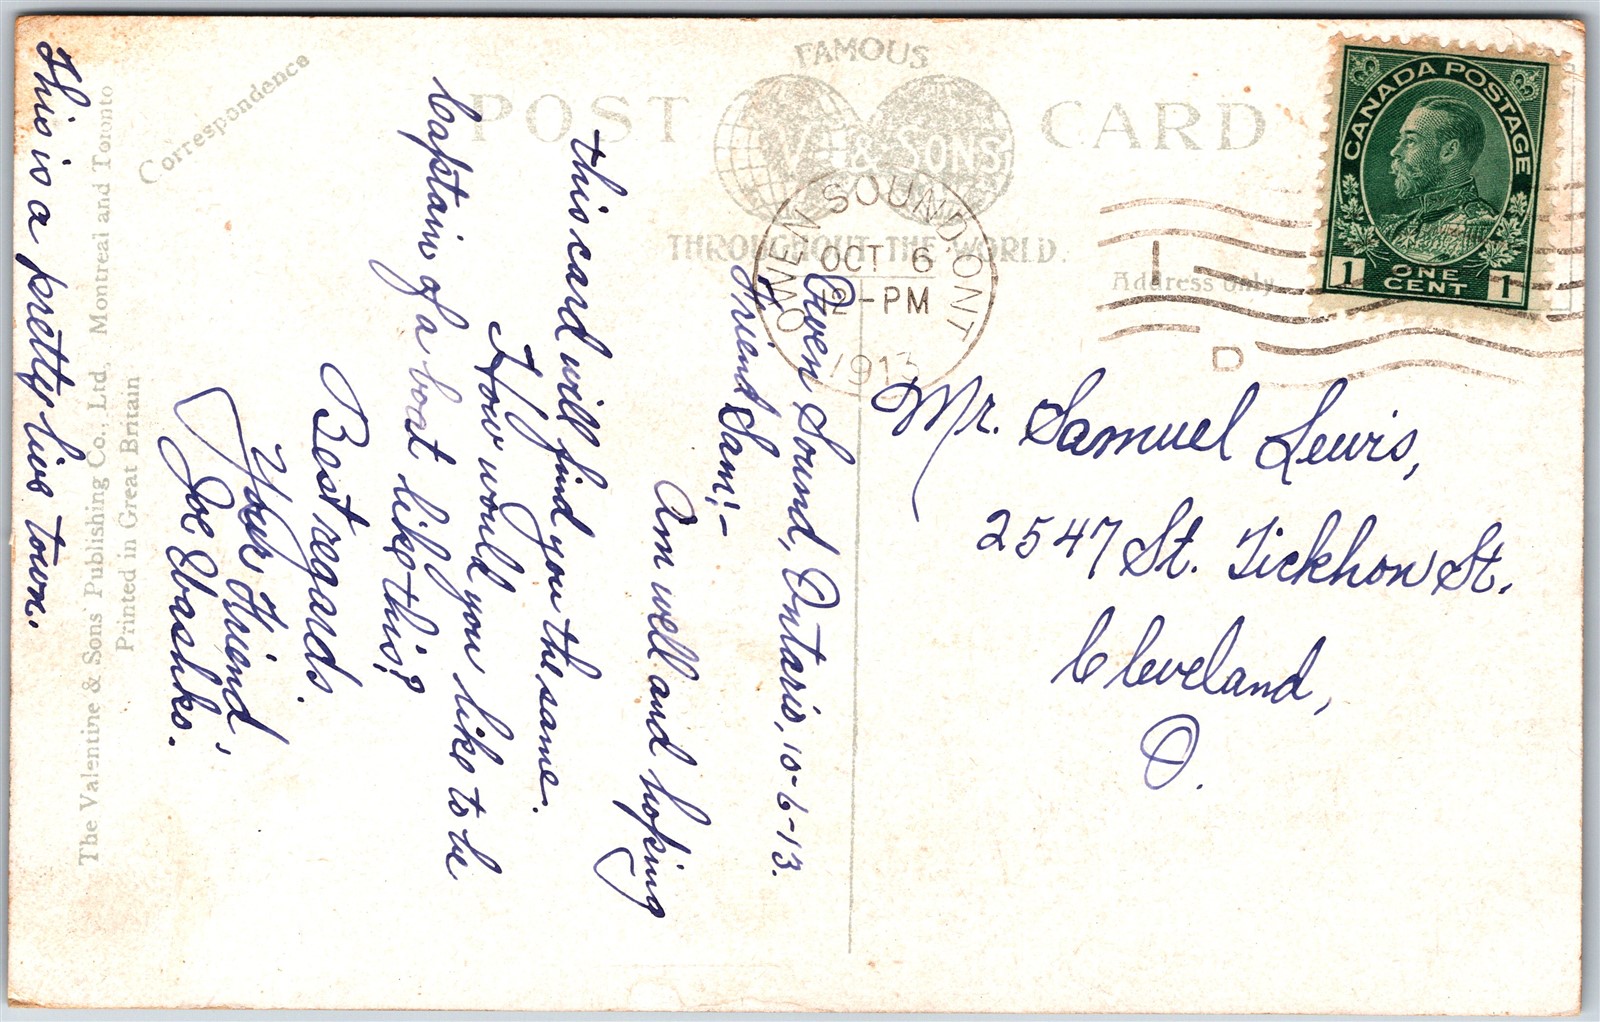 FAMOUS
POST CARD
& SONS
THROUGHOUT THE WORLD.
Correspondence
Address only.
CANADA POSTAGE
1 ONE CENT 1
OWEN SOUND. ONT
OCT 6
-PM
1913
D
Owen Sound, Ontario, 10-6-13.
Friend Sam:-
Am well and hoping
this card will find you the same.
How would you like to be
Captain of a boat like this?
Best regards.
Your Friend,
Joe
This is a pretty live town.
Mr. Samuel Lewis,
2547 St. Tickhon St.
Cleveland,
O.
The Valentine & Sons' Publishing Co., Ltd, Montreal and Toronto
Printed in Great Britain